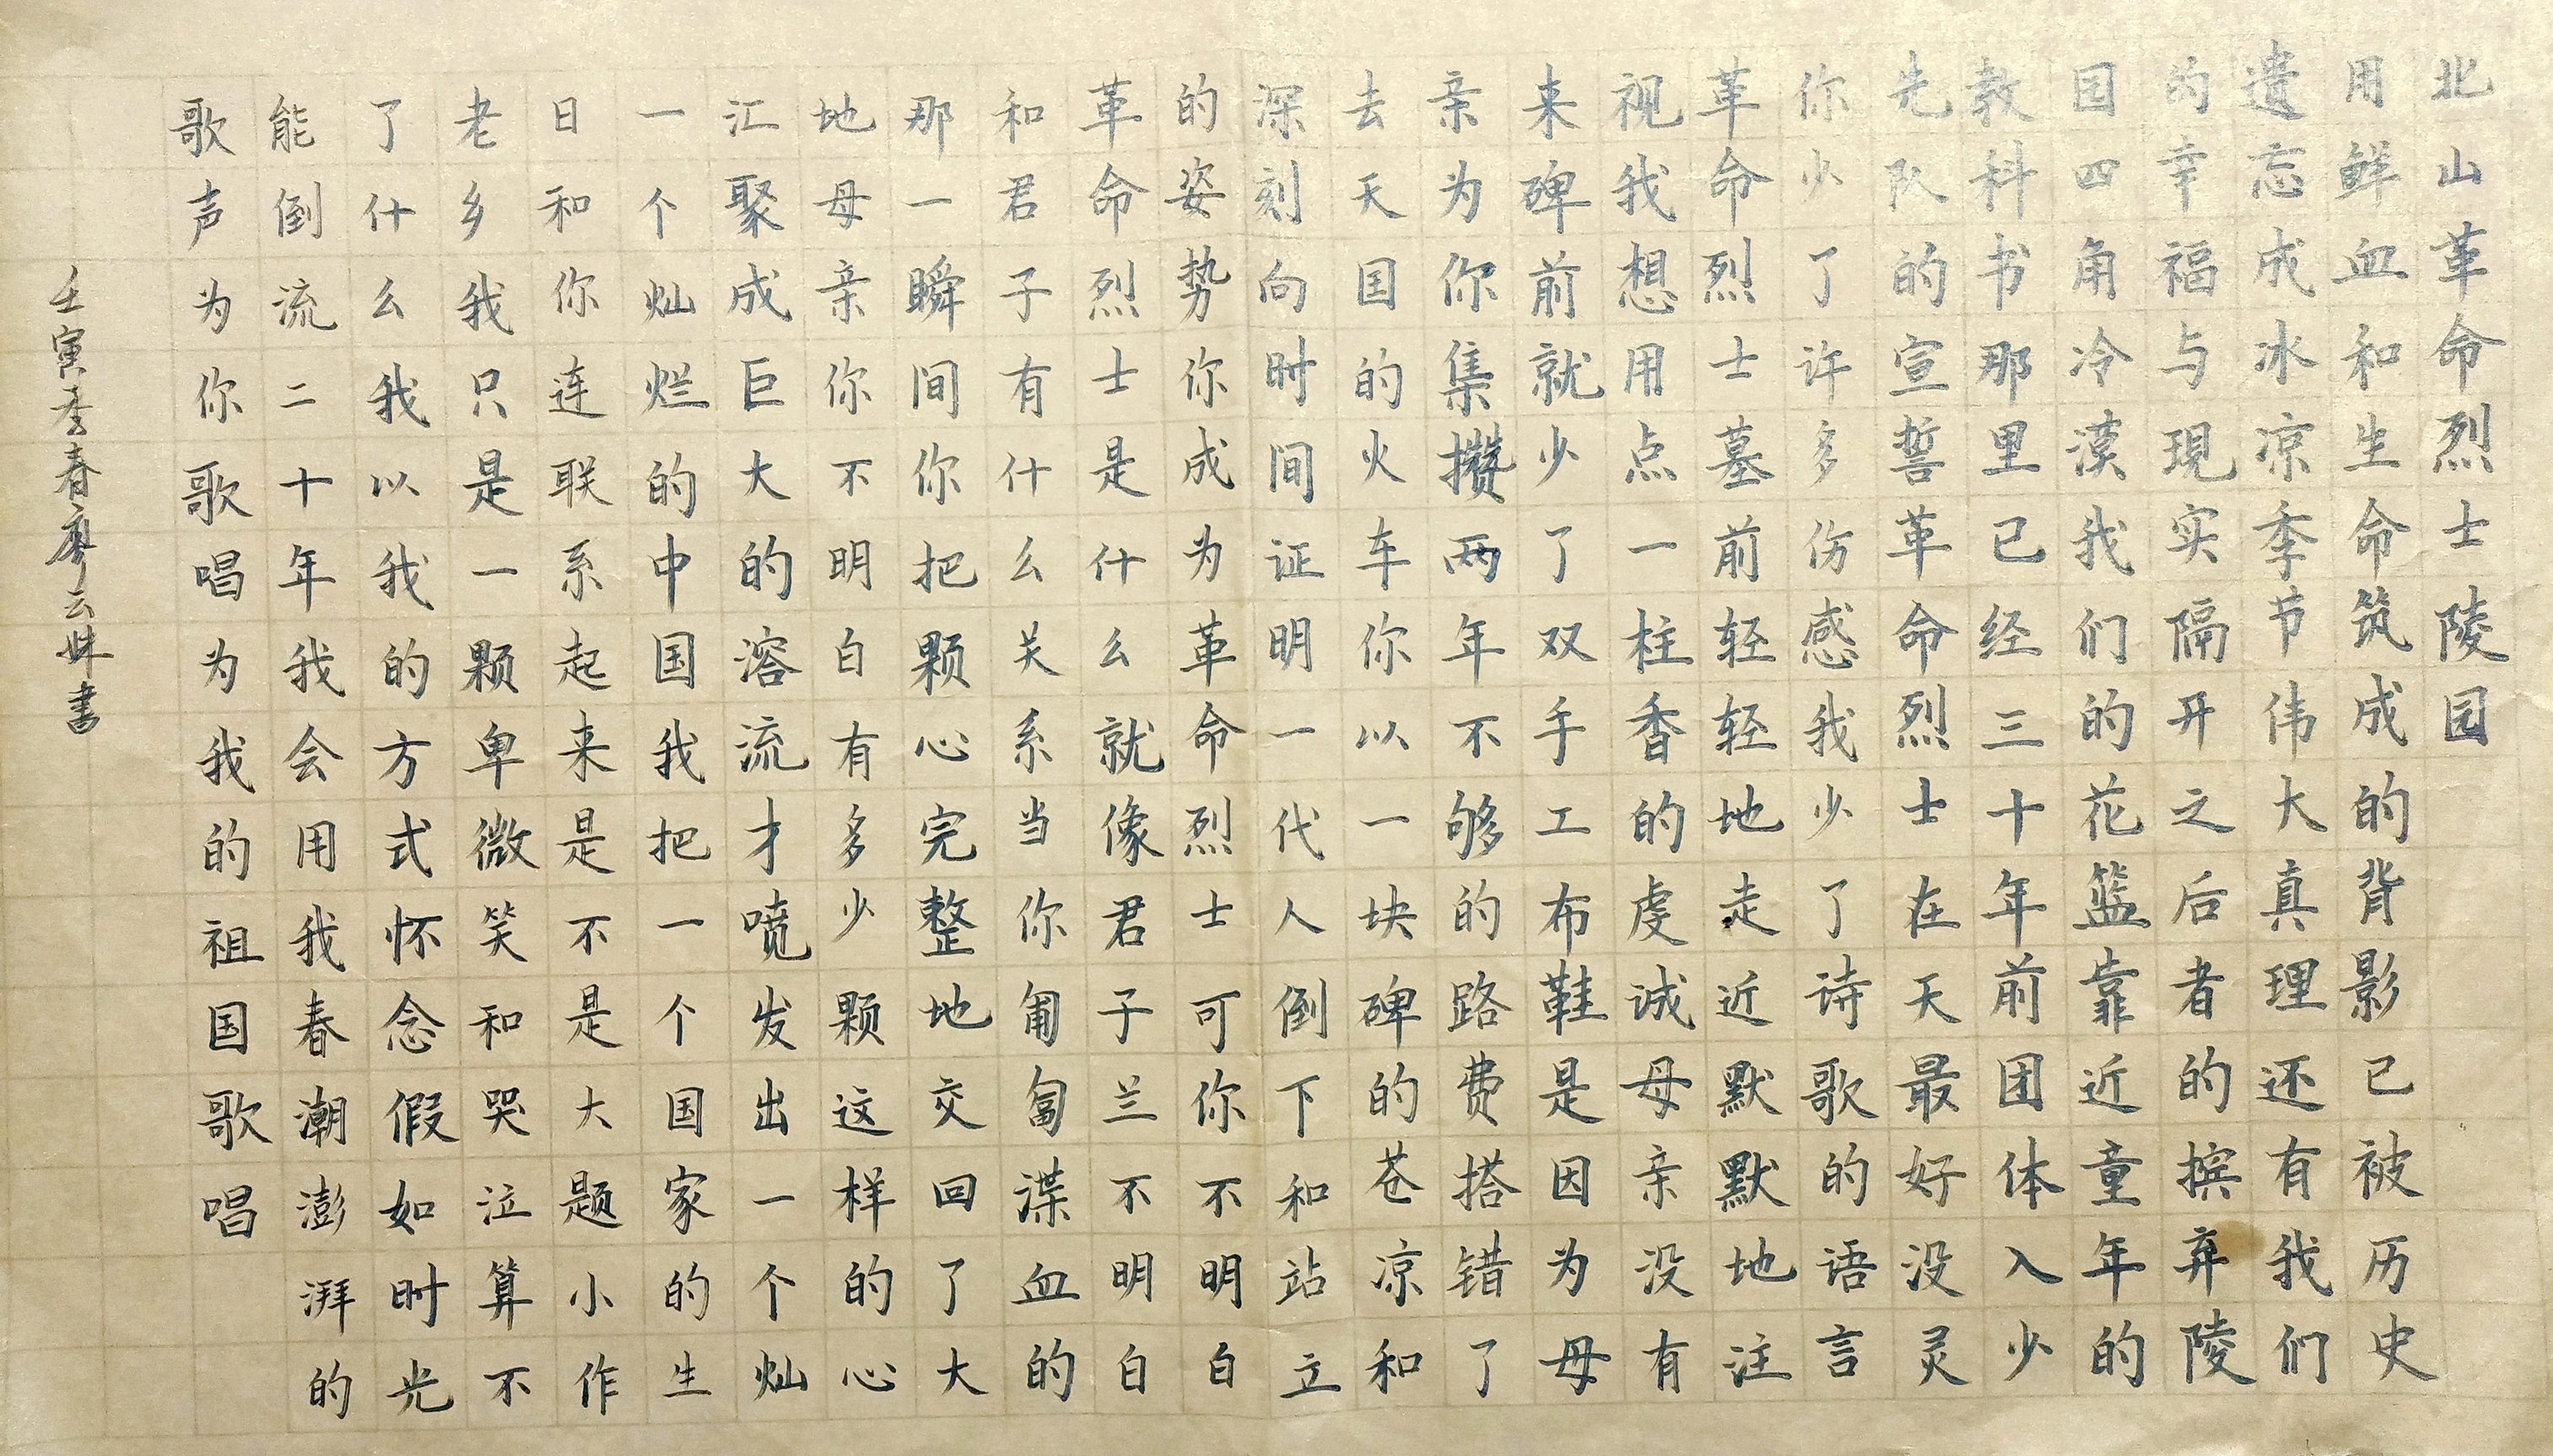 北山革命烈士陵园
用鲜血和生命筑成的背影已被历史
遗忘成冰凉季节伟大真理还有我们
的幸福与現实隔开之后者的摈弃陵
园四角冷漠我们的花篮靠近童年的
教科书那里已经三十年前团体入少
先队的宣誓革命烈士在天最好没灵
你少了许多伤感我少了诗歌的语言
革命烈士墓前轻轻地走近默默地注
视我想用点一柱香的虔诚母亲没有
来碑前就少了双手工布鞋是因为母
亲为你集攒两年不够的路费搭错了
去天国的火车你以一块碑的苍凉和
深刻向时间证明一代人倒下和站立
的姿势你成为革命烈士可你不明白
革命烈士是什么就像君子兰不明白
和君子有什么关系当你匍匐渫血的
那一瞬间你把颗心完整地交回了大
地母亲你不明白有多少颗这样的心
汇聚成巨大的溶流才喷发出一个灿
一个灿烂的中国我把一个国家的生
日和你连联系起来是不是大题小作
老乡我只是一颗卑微笑和哭泣算不
了什么我以我的方式怀念假如时光
能倒流二十年我会用我春潮澎湃的
歌声为你歌唱为我的祖国歌唱
壬寅季春廖云姝书